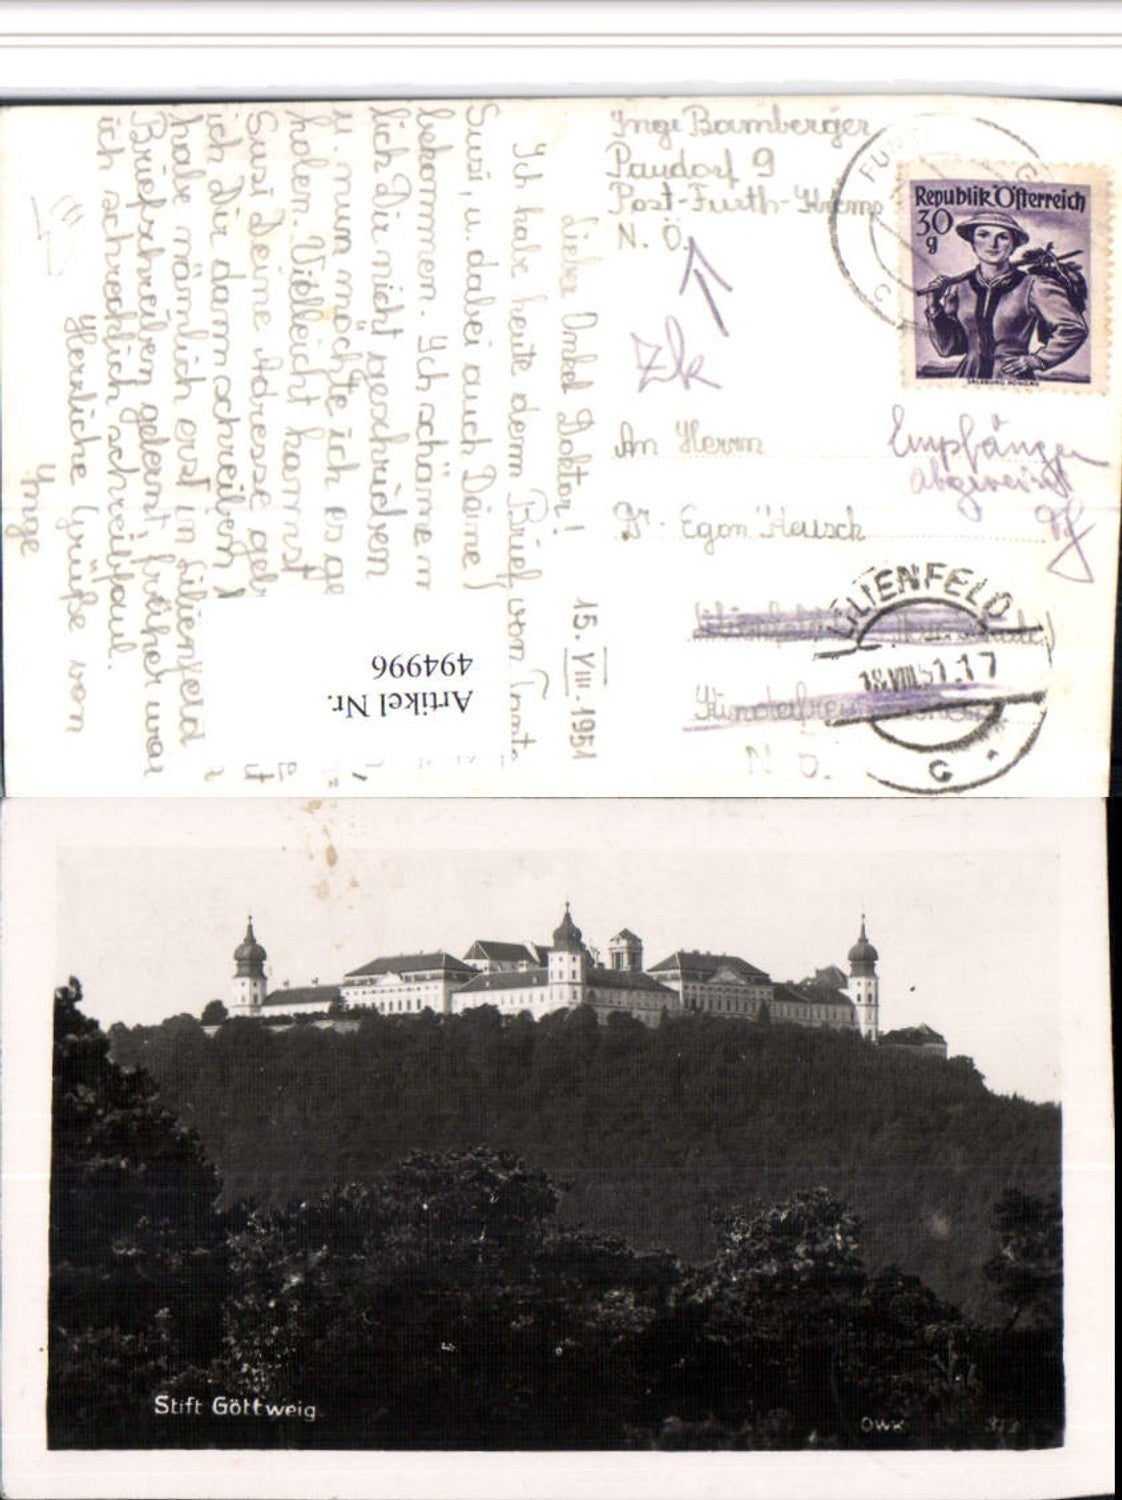 Inge Bamberger
Paudorf 9
Post-Furth-Krems
N. Ö.
Zk
Republik Österreich
30
g
An Herrn
Dr. Egon Hausch
Empfänger
abgereist
LILIENFELD
18.VIII.51.17
C
N. Ö.
15. VIII. 1951
Lieber Onkel Doktor!
Ich habe heute den Brief von Tante
Susi, u. dabei auch Deine
bekommen. Ich schäme m
lich Dir nicht geschrieben
u. nun möchte ich es
holen. Vielleicht kannst
Susi Deine Adresse
ich Dir dann schreiben
habe nämlich erst in Lilienfeld
Briefschreiben gelernt, früher war
ich schrecklich schreibfaul.
Herzliche Grüße von
Inge
Artikel Nr.
494996
Stift Göttweig
OWK